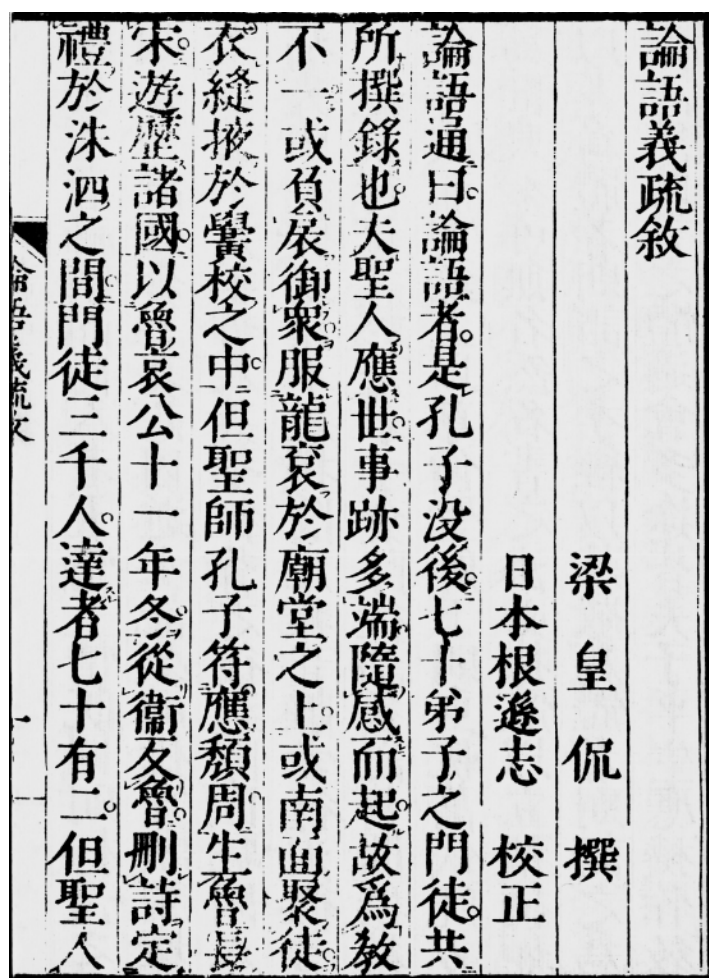 論語義疏敘
梁 皇 侃 撰
日本根遜志 校正
論語通曰。論語者。是孔子没後。七十弟子之門徒。共
所撰錄也。夫聖人應世。事跡多端。隨感而起。故爲敎
不一。或負扆御衆。服龍衮於廟堂之上。或南面聚徒。
衣縫掖於黌校之中。但聖師孔子。符應頽周。生魯長
宋。遊歷諸國。以魯哀公十一年冬。從衞反魯。刪詩定
禮於洙泗之間。門徒三千人。達者七十有二。但聖人
論語義疏敘